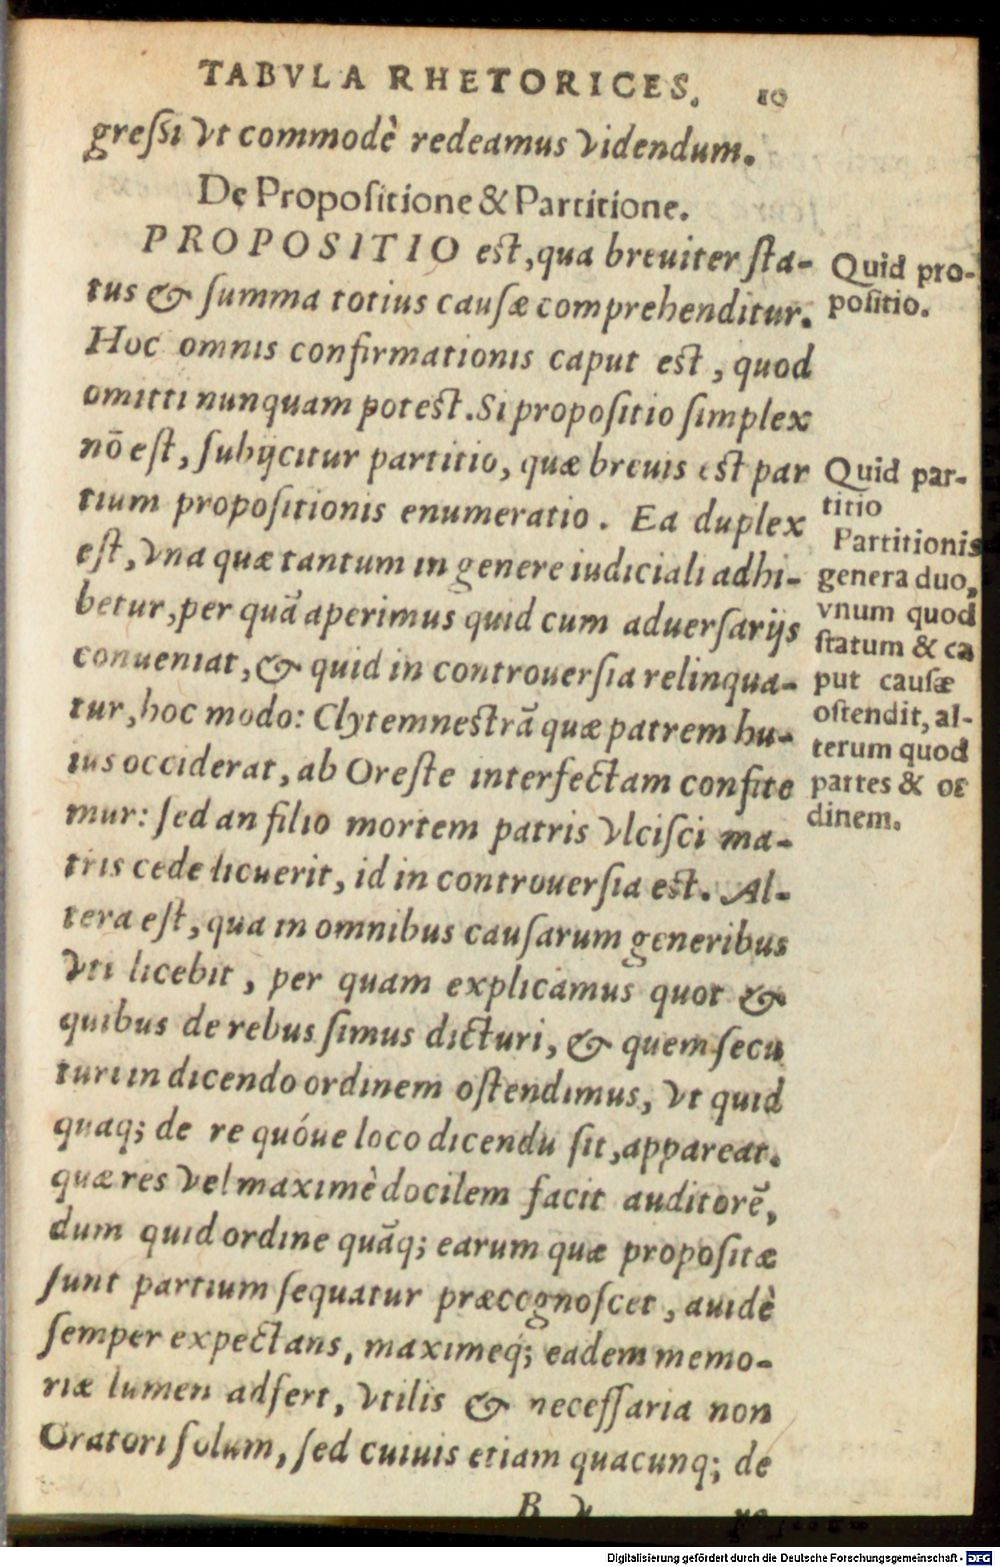 TABVLA RHETORICES. 10
greſſi vt commodè redeamus videndum.
De Propoſitione & Partitione.
PROPOSITIO eſt, qua breuiter ſta-
tus & ſumma totius cauſæ comprehenditur.
Hoc omnis confirmationis caput eſt, quod
omitti nunquam poteſt. Si propoſitio ſimplex
nō eſt, ſubijcitur partitio, quæ breuis eſt par
tium propoſitionis enumeratio. Ea duplex
eſt, vna quæ tantum in genere iudiciali adhi-
betur, per quā aperimus quid cum aduerſarijs
conueniat, & quid in controuerſia relinqua-
tur, hoc modo: Clytemneſtrā quæ patrem hu-
ius occiderat, ab Oreſte interfectam confite
mur: ſed an filio mortem patris vlciſci ma-
tris cede licuerit, id in controuerſia eſt. Al-
tera eſt, qua in omnibus cauſarum generibus
vti licebit, per quam explicamus quot &
quibus de rebus ſimus dicturi, & quem ſecu
turi in dicendo ordinem oſtendimus, vt quid
quaq; de re quóue loco dicendu ſit, appareat.
quæ res vel maximè docilem facit auditorē,
dum quid ordine quāq; earum quæ propoſitæ
ſunt partium ſequatur præcognoſcet, auidè
ſemper expectans, maximeq́; eadem memo-
riæ lumen adfert, vtilis & neceſſaria non
Oratori ſolum, ſed cuiuis etiam quacunq; de
B v re
Quid pro-
poſitio.
Quid par-
titio
Partitionis
genera duo,
vnum quod
ſtatum & ca
put cauſæ
oſtendit, al-
terum quod
partes & or
dinem.
Digitalisierung gefördert durch die Deutsche Forschungsgemeinschaft - DFG